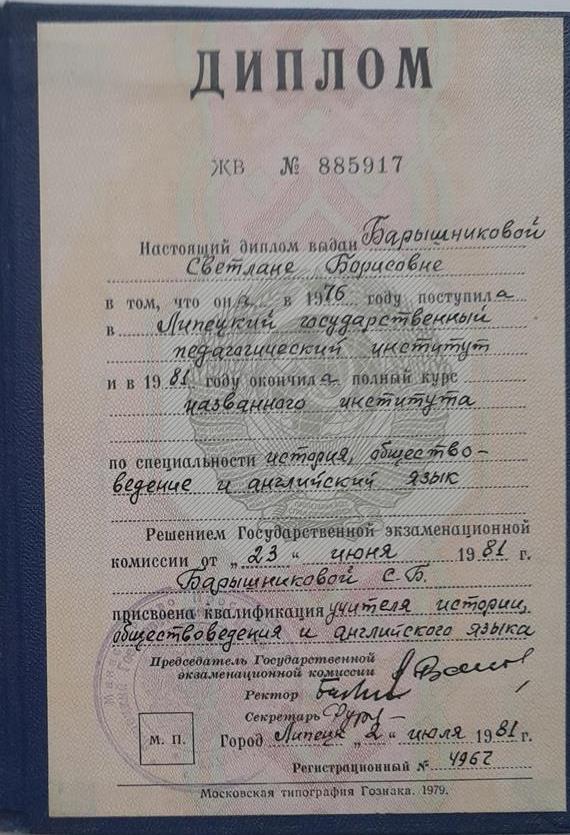 ДИПЛОМ
ЖВ № 885917
Настоящий диплом выдан Барышниковой
Светлане Борисовне
в том, что она в 1976 году поступила
в Липецкий государственный
педагогический институт
и в 1981 году окончила полный курс
названного института
по специальности история, общество-
ведение и английский язык
Решением Государственной экзаменационной
комиссии от „23“ июня 1981 г.
Барышниковой С.Б.
присвоена квалификация учителя истории,
обществоведения и английского языка
Председатель Государственной
экзаменационной комиссии
Ректор
Секретарь
М. П.
Город Липецк „2“ июля 1981 г.
Регистрационный № 4967
Московская типография Гознака. 1979.